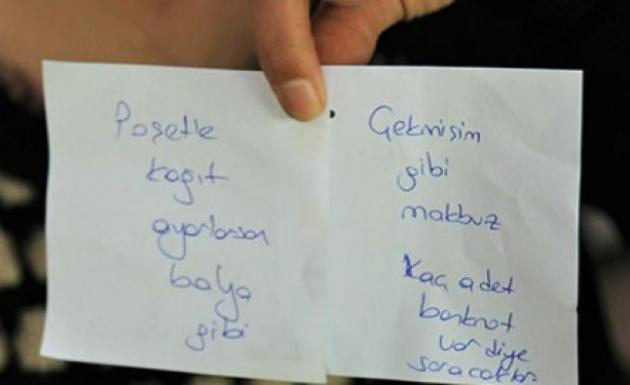 Poşetle
kağıt
ayarlasın
balya
gibi
Çekmişim
gibi
makbuz
Kaç adet
banknot
var diye
soracaklar